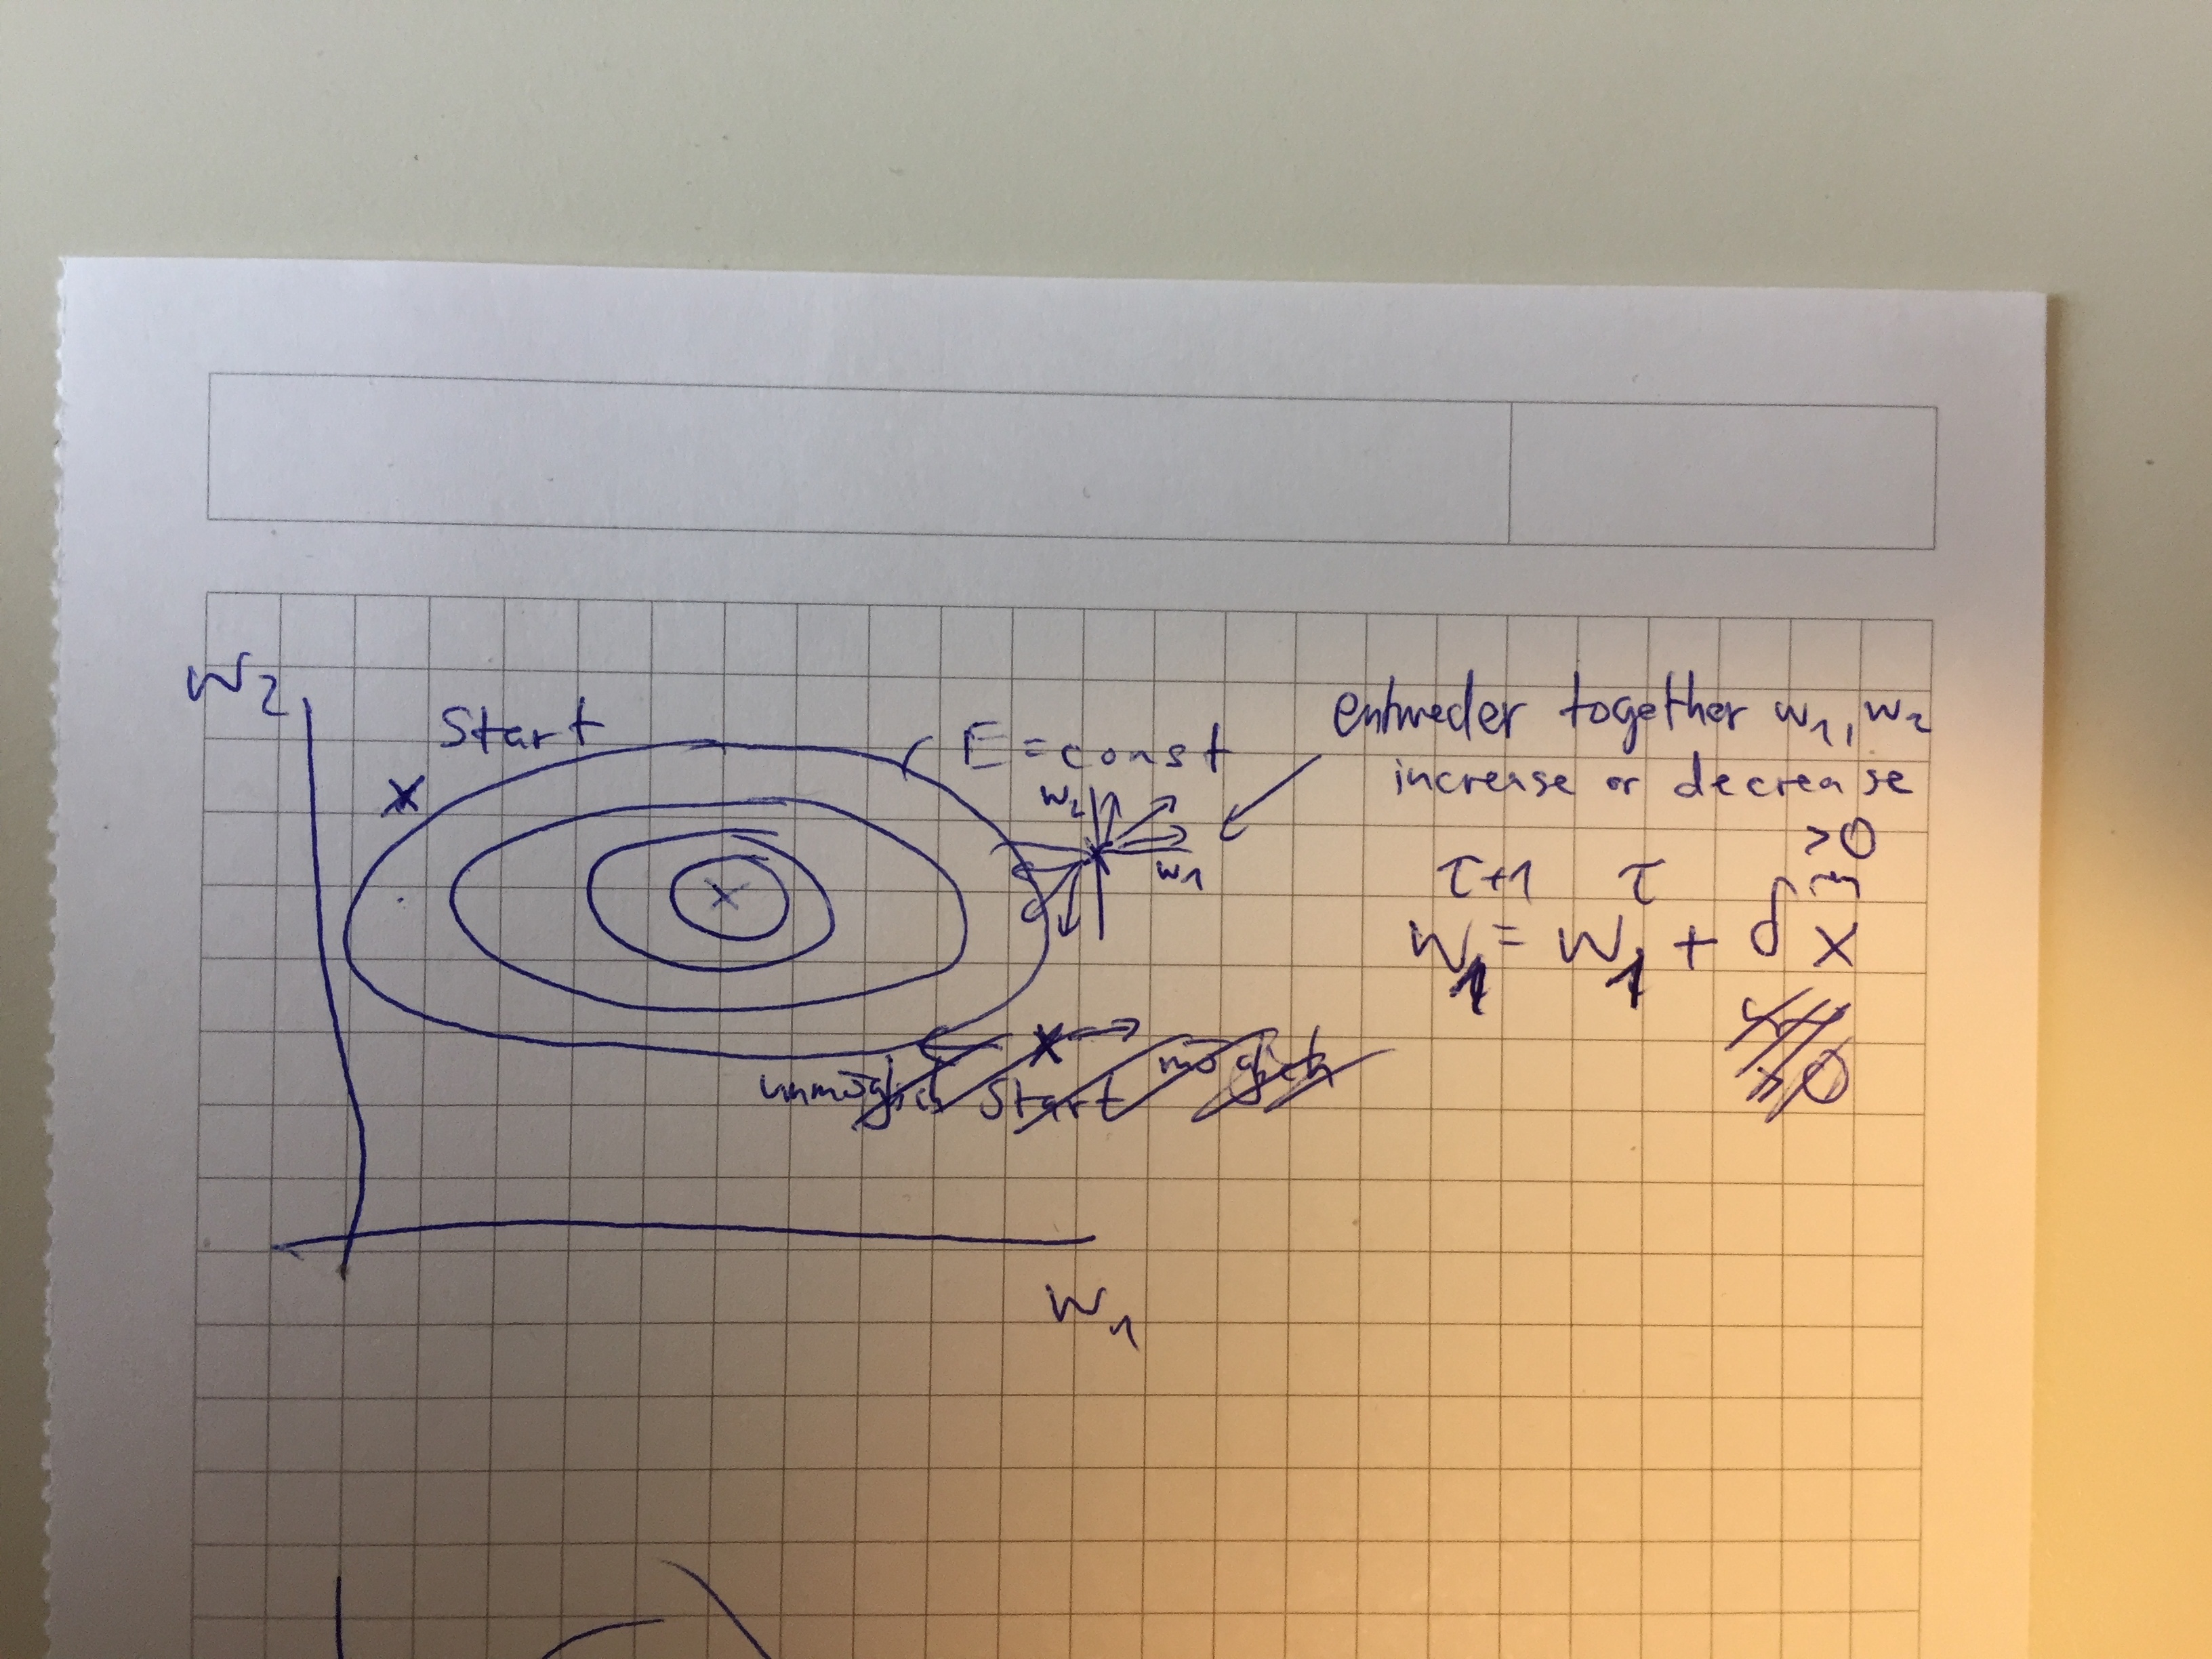 w₂
Start
E = const
w₂
w₁
entweder together w₁, w₂
increase or decrease
>0
τ+1 τ
w₁ = w₁ + δ x
>0
unmöglich Start möglich
w₁